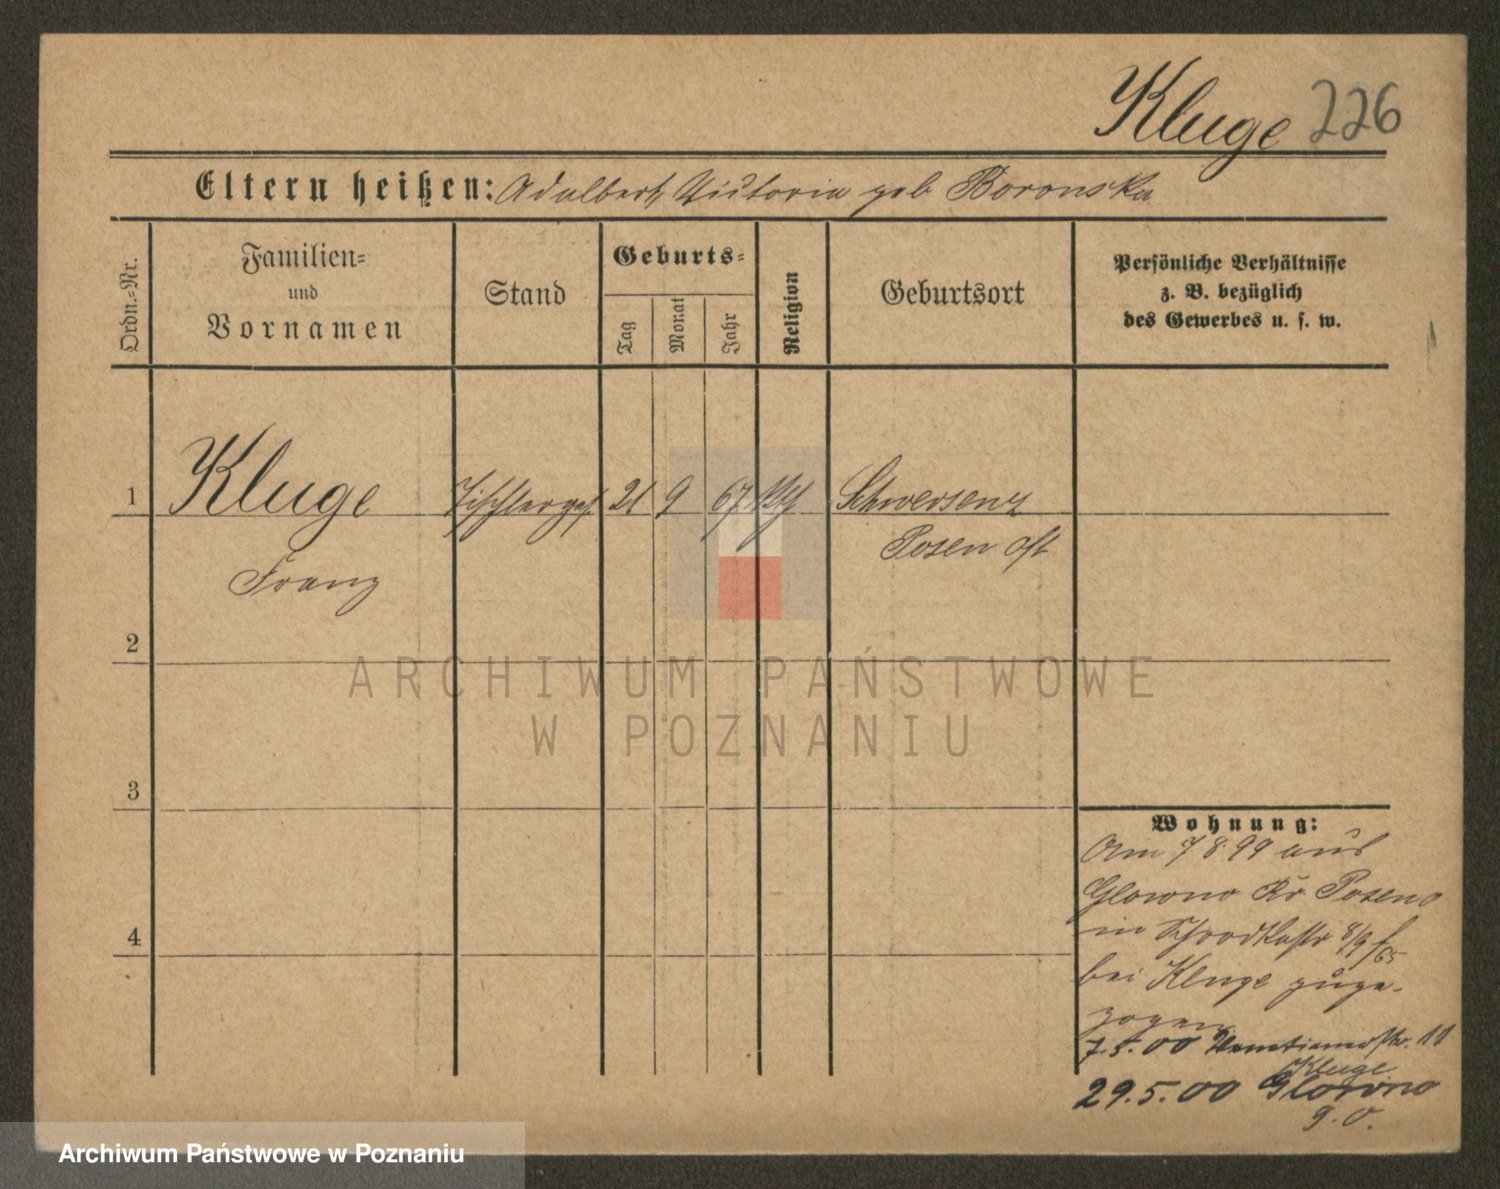 Kluge 226
Eltern heißen: Adalbert, Victoria geb Boronska
Ordn.=Nr.
Familien=
und
Vornamen
Stand
Geburts=
Tag
Monat
Jahr
Religion
Geburtsort
Persönliche Verhältnisse
z. B. bezüglich
des Gewerbes u. s. w.
1 Kluge Tischlerges. 21 9 67 kth Schwersenz
Posen Ost
Franz
2
3
4
Wohnung:
Am 7 8 99 aus
Glowno Kr. Posen O
in Schrodkastr 8/9
bei Kluge zuge-
zogen
7.5.00 Venetianerstr. 11
Kluge
29.5.00 Glowno
g. O.
ARCHIWUM PAŃSTWOWE
W POZNANIU
Archiwum Państwowe w Poznaniu